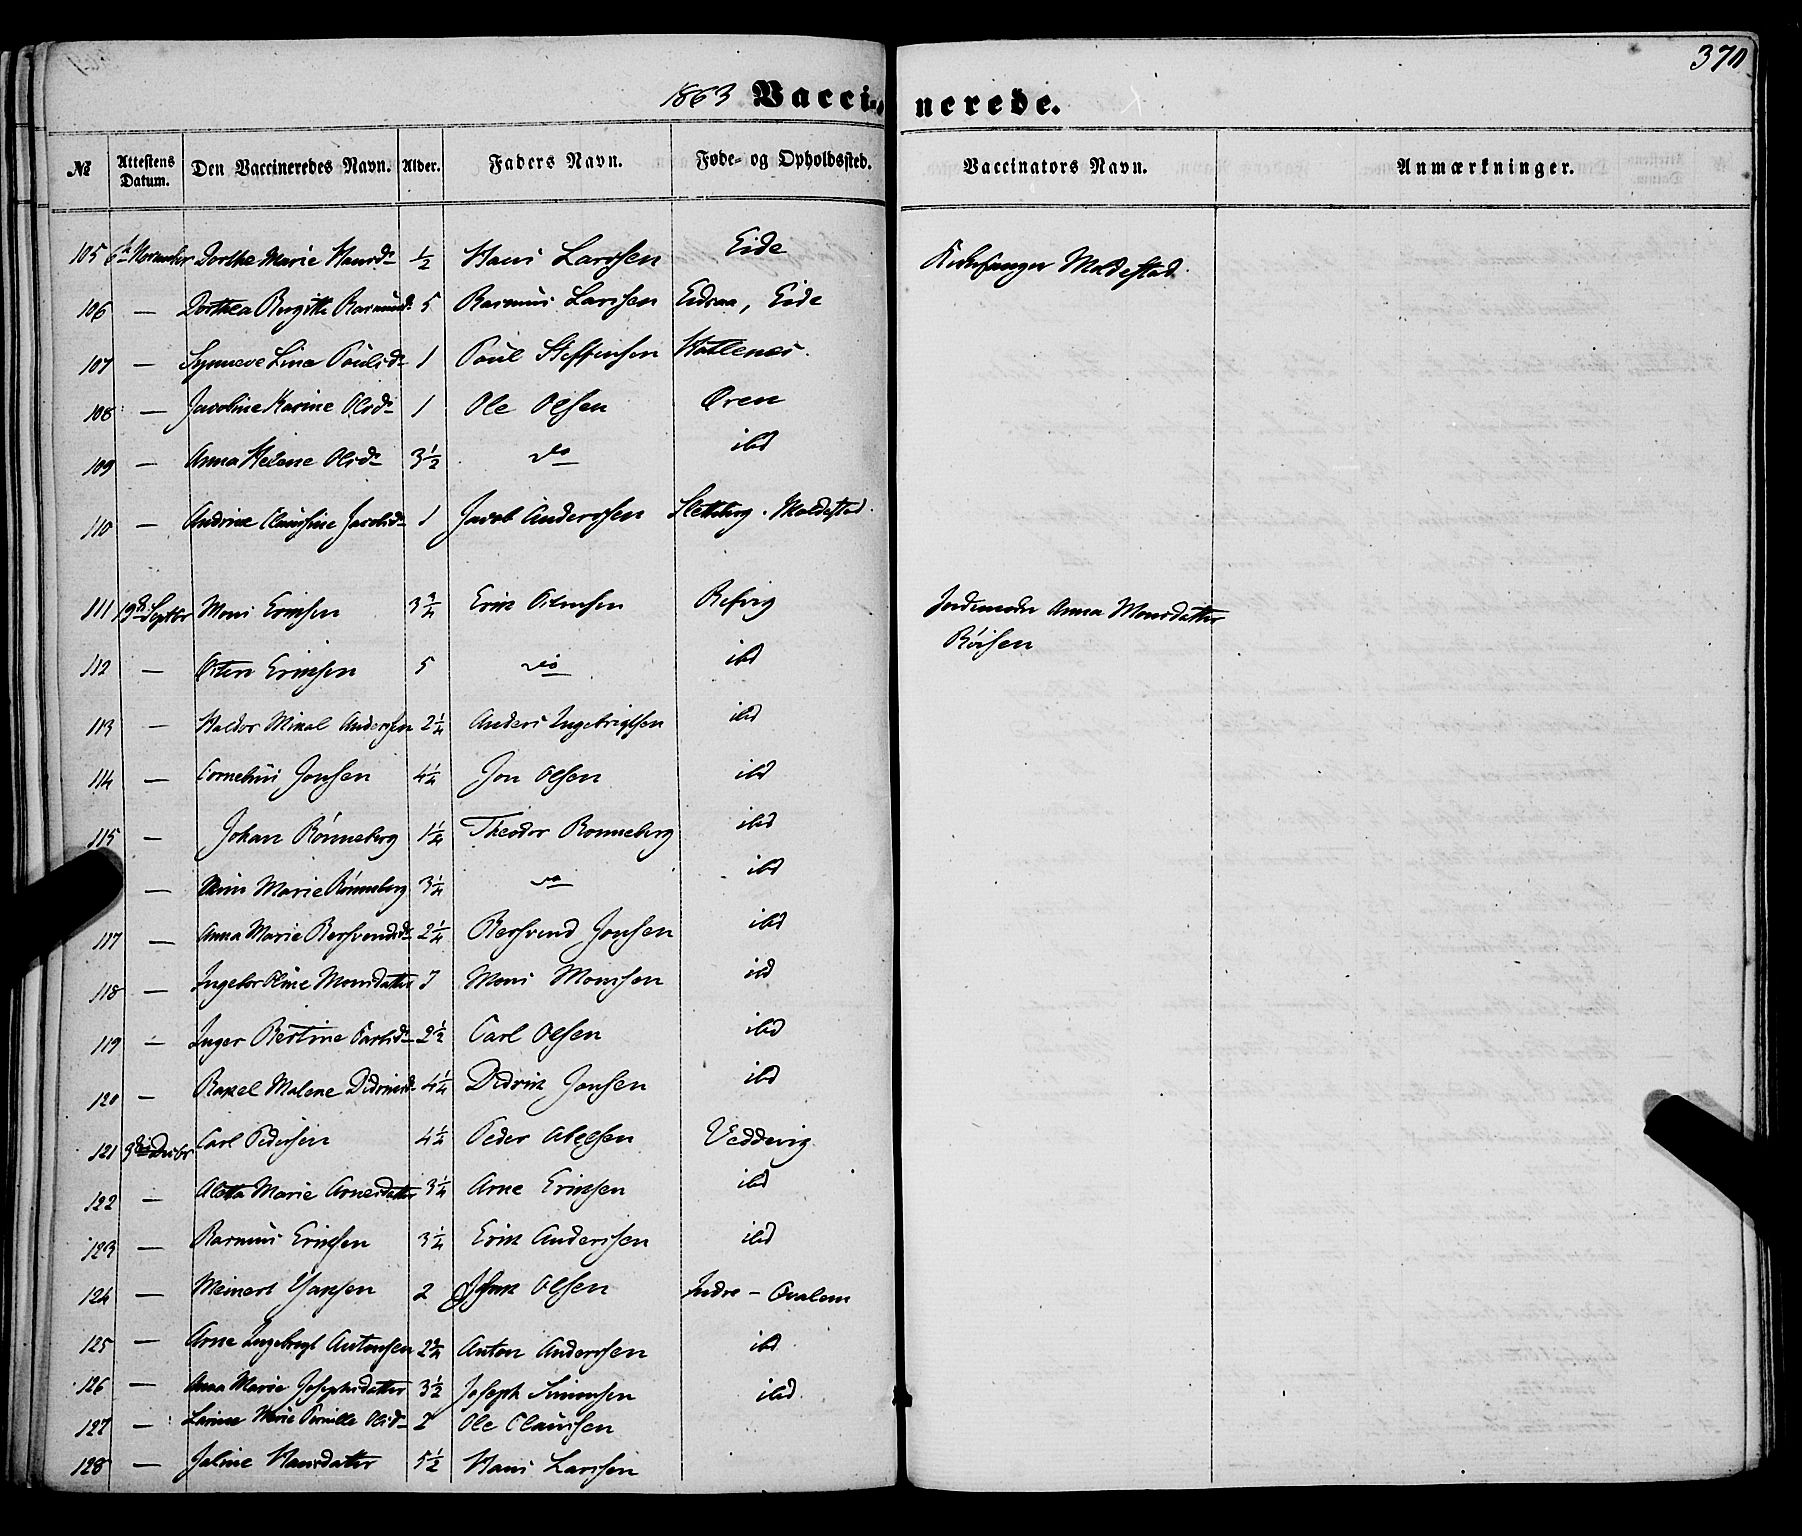 370
1863 Vaccinerede.
№ Attestens Datum. Den Vaccineredes Navn. Alder. Faders Navn. Føde- og Opholdssted. Vaccinators Navn. Anmærkninger.
105 6te November Dorthe Marie Hansdr ½ Hans Larssen Eide Kirkesanger Moldestad
106 — Dorthea Birgitte Rasmusd. 5 Rasmus Larssen Eidsaa, Eide
107 — Synneve Lina Poulsdr 1 Poul Steffensen
108 — Jacobine Karine Olsdr 1 Ole Olsen Øren
109 — Anna Helene Olsdr 3½ do ibd
110 — Andrine Claussine Jacobsdr 1 Jacob Anderssen Moldestad.
111 19de Septbr Mons Eriksen 3¾ Erik Refvig Jordemoder Anna Monsdatter
Röisen
112 — Østen Eriksen 5 do ibd
113 — Haldor Mikal Anderssen 2¼ Anders Ingebrigtsen ibd
114 — Cornelius Jonsen 4¼ Jon Olsen ibd
115 — Johan Rönneberg 1¼ Theodor Ronneberg ibd
— Marie Rönneberg 3¼ do ibd
117 — Anna Marie Bersvendsdr 2¼ Bersvend Jonsen ibd
118 — Ingebor Oline Monsdatter 7 Mons Monssen ibd
119 — Inger Bertine Carlsdr 2½ Carl Olsen ibd
120 — Rakel Malene Didriksd. 4¼ Didrik Jonsen ibd
121 3die Decbr Carl Pedersen 4½ Peder Veddevig
122 — Aletta Marie Arnesdatter 3¼ Arne Eriksen ibd
123 — Rasmus Eriksen 3¼ Erik Anderssen ibd
124 — Meinert 2 Olsen Indre – Qvalem
125 — Arne Ingebrigt Antonsen 2¾ Anton Anderssen ibd
126 — Anna Marie Josephsdatter 3½ Joseph Simonsen ibd.
127 — Larine Marie Pernille Olsdr 2 Ole Claussen
128 — Jaline Hansdatter 5½ Hans Larssen